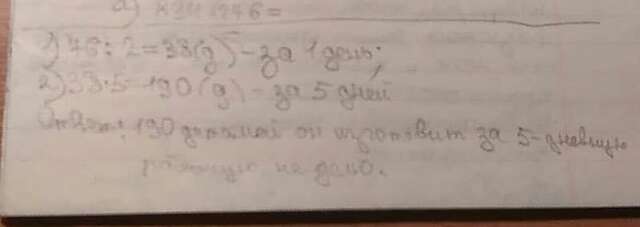 1) 76 : 2 = 38 (д) - за 1 день;
2) 38 · 5 = 190 (д) - за 5 дней
Ответ: 190 деталей он изготовит за 5-дневную
рабочую неделю.